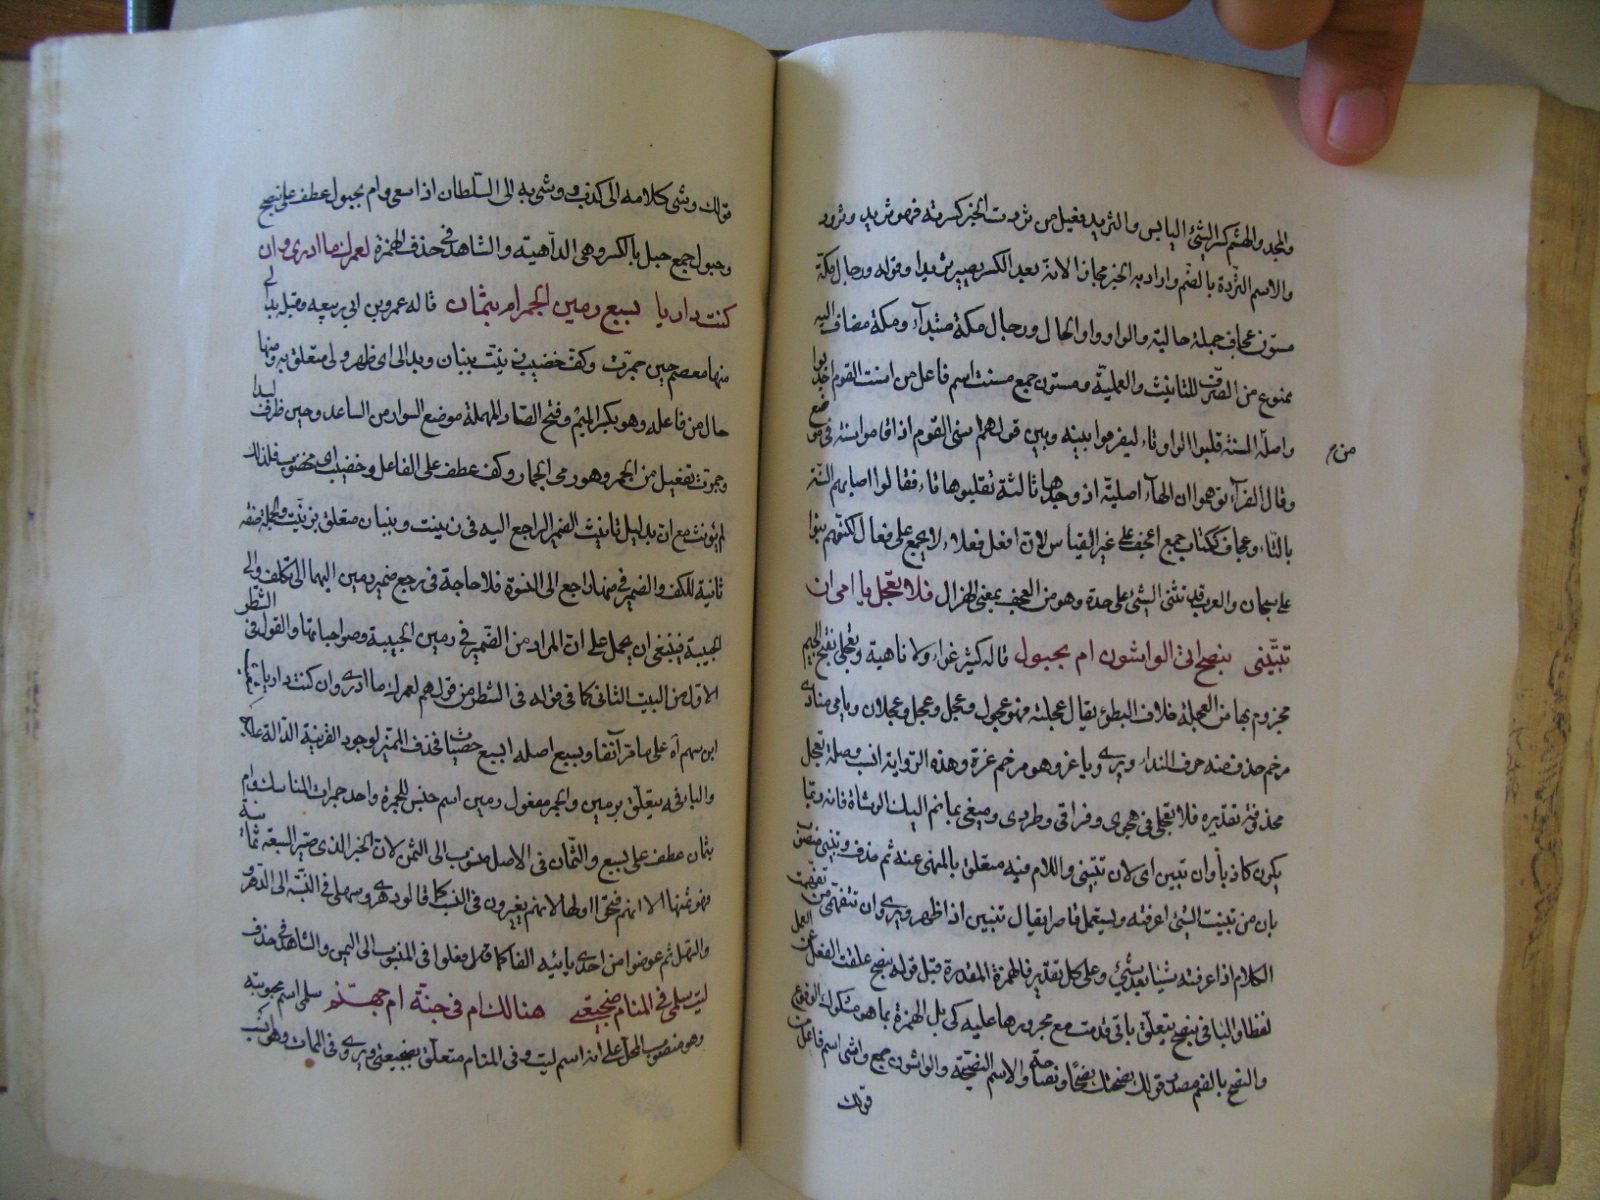 والمجد والهشم كسر الشئ اليابس والثريد فعيل من ثردت الخبز كسرته فهو ثريد ومثرود
والاسم الثردة بالضم واراد به الخبز مجازا لانه بعد الكسر يصير ثريدا وقوله ورجال مكة
مسنتون عجاف جملة حالية والواو واو الحال ورجال مكة مبتدأ ومكة مضاف اليه
ممنوع من الصرف للتانيث والعلمية ومسنتون جمع مسنت اسم فاعل من اسنت القوم اجدبوا
واصله السنة قلبوا الواو تاء ليفرقوا بينه وبين قولهم اسنى القوم اذا اقاموا سنة في موضع
من م
وقال الفراء توهموا ان الهاء اصلية اذ وجدها ثالثة فقلبوها تاء فقالوا اصابهم السنة
بالتاء وعجاف ككتاب جمع اعجف على غير القياس لان افعل فعلاء لا يجمع على فعال لكنهم بنوا
على سمان والعرب قد تبنى الشئ على حدة وهو من العجف بمعنى الهزال فلا تعجل يا امى ان
تبيّنى بنصح اتى الواشون ام بحبول قاله كثير عزاء ولا ناهية وتعجلى بفتح الجيم
مجزوم بها من العجلة خلاف البطؤ يقال عجلته فهو عجول وعجل وعجل وعجلان ويا مى منادى
مرخم حذف منه حرف النداء ويروى ويا عز وهو مرخم عزة وهذه الرواية انسب وصلة تعجل
محذوفة تقديره فلا تعجلى في هجرى وفراقى وطردى ومبغى بما نم اليك الوشاة فانه ربما
يكون كاذبا وان تبين اى لان تتبينى واللام فيه متعلق بالمنهى عنه ثم حذف وتبينى منصوب
بان من تبينت الشئ اعرفته ويستعمل قاصرا يقال تبين اذا ظهر ويروى وان تتفهمى من تفهمت
الكلام اذا عرفته شيئا بعد شئ وعلى كل تقدير فالهمزة المقدرة قبل قوله بنصح علقت الفعل عن العمل
لفظا والبا فى بنصح يتعلق باتى قدمت مع مجرورها عليه كى يلى الهمزة بما هو مشكوك الوقوع
والنصح بالضم مصدر قولك نصحتك نصحا ونصاحة والاسم النصيحة والواشون جمع واشى اسم فاعل من
قولك
قولك وشى كلامه الى كذب ووشى به الى السلطان اذا سعى وام بحبول عطف على بنصح
وحبول جمع حبل بالكسر وهى الداهية والشاهد فى حذف الهمزة لعمرك ما ادرى وان
كنت داريا بسبع رمين الجمر ام بثمان قاله عمر وبن ابى ربيعه وقبله بدا لى
منها معصم حين جمرت وكف خضيب زينت ببنان وبدا لى اى ظهر ولى متعلق به ومنها
حال من فاعله وهو بكسر الميم وفتح الصاد المهملة موضع السوار من الساعد وحين ظرف لبدا
وجمرت تفعيل من الجمر وهو رمى الجمار وكف عطف على الفاعل وخضيب اى مخضوب فلذلك
لم يؤنث مع انه بدليل تانيث الضمير الراجع اليه فى زينت وببنان متعلق بزينت والجملة صفة
ثانية للكف والضمير فى منها راجع الى النسوة فلا حاجة فى رجع ضمير رمين اليهما الى تكلف والى
الحبيبة فينبغى ان يحمل على ان المراد من الضمير فى رمين الحبيبة وصواحباتها والقول فى الشطر
الاول من البيت الثانى كما فى قوله فى الشطر من قولهم لعمرك ما ادرى وان كنت داريا
ابن سهم آه على ما مر آنفا وبسبع اصله ابسبع حصيات فحذف المميز لوجود القرينة الدالة عليه
والبا فيه يتعلق برمين والجمر مفعول رمين اسم جنس للجمرة واحد جمرات المناسك وام
بثمان عطف على بسبع والثمان فى الاصل منسوب الى الثمن لان الخبر الذى صير السبعة ثمانية
فهو ثمنها الا انهم فتحوا اولها لانهم يغيرون فى النسب كما قالوا دهرى وسهلى فى النسبة الى الدهر و
والسهل ثم عوضوا من احدى يائيه الفا كما فعلوا فى المنسوب الى اليمن والشاهد فى حذف
ليت سلمى فى المنام ضجيعتى هنالك ام فى جنة ام جهنم سلمى اسم محبوبته
وهو منصوب المحل على انه اسم ليت وفى المنام متعلق بضجيعتى ويروى وفى الممات وظرف